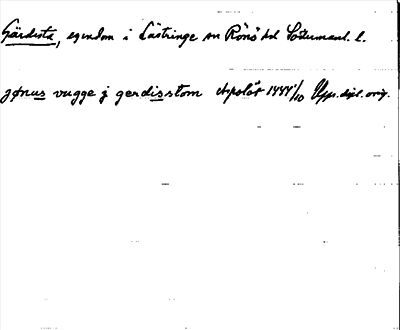 Gärdista, egendom i Lästringe sn Rönö hd Södermanl. l.
jønus vugge j gerdisstom Aspelöt 1447 1/10 Upps. dipl. orig.